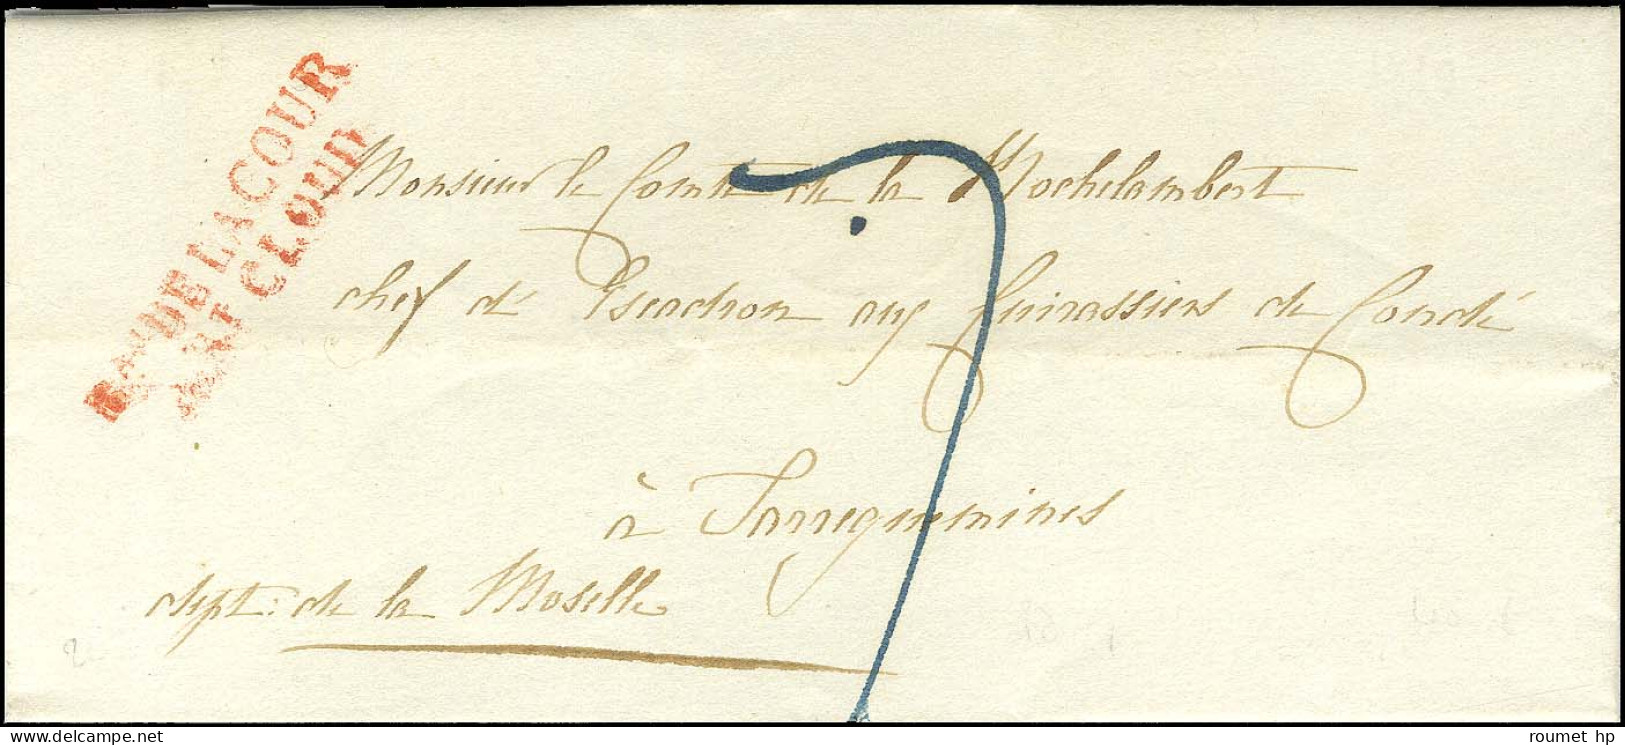 BAU DE LA COUR
SAINT CLOUD
Monsieur le Comte de la Rochelambert
chef d'Escadron aux Cuirassiers de Condé
à Sarreguemines
dept: de la Moselle
7
delcampe.net
roumet hp